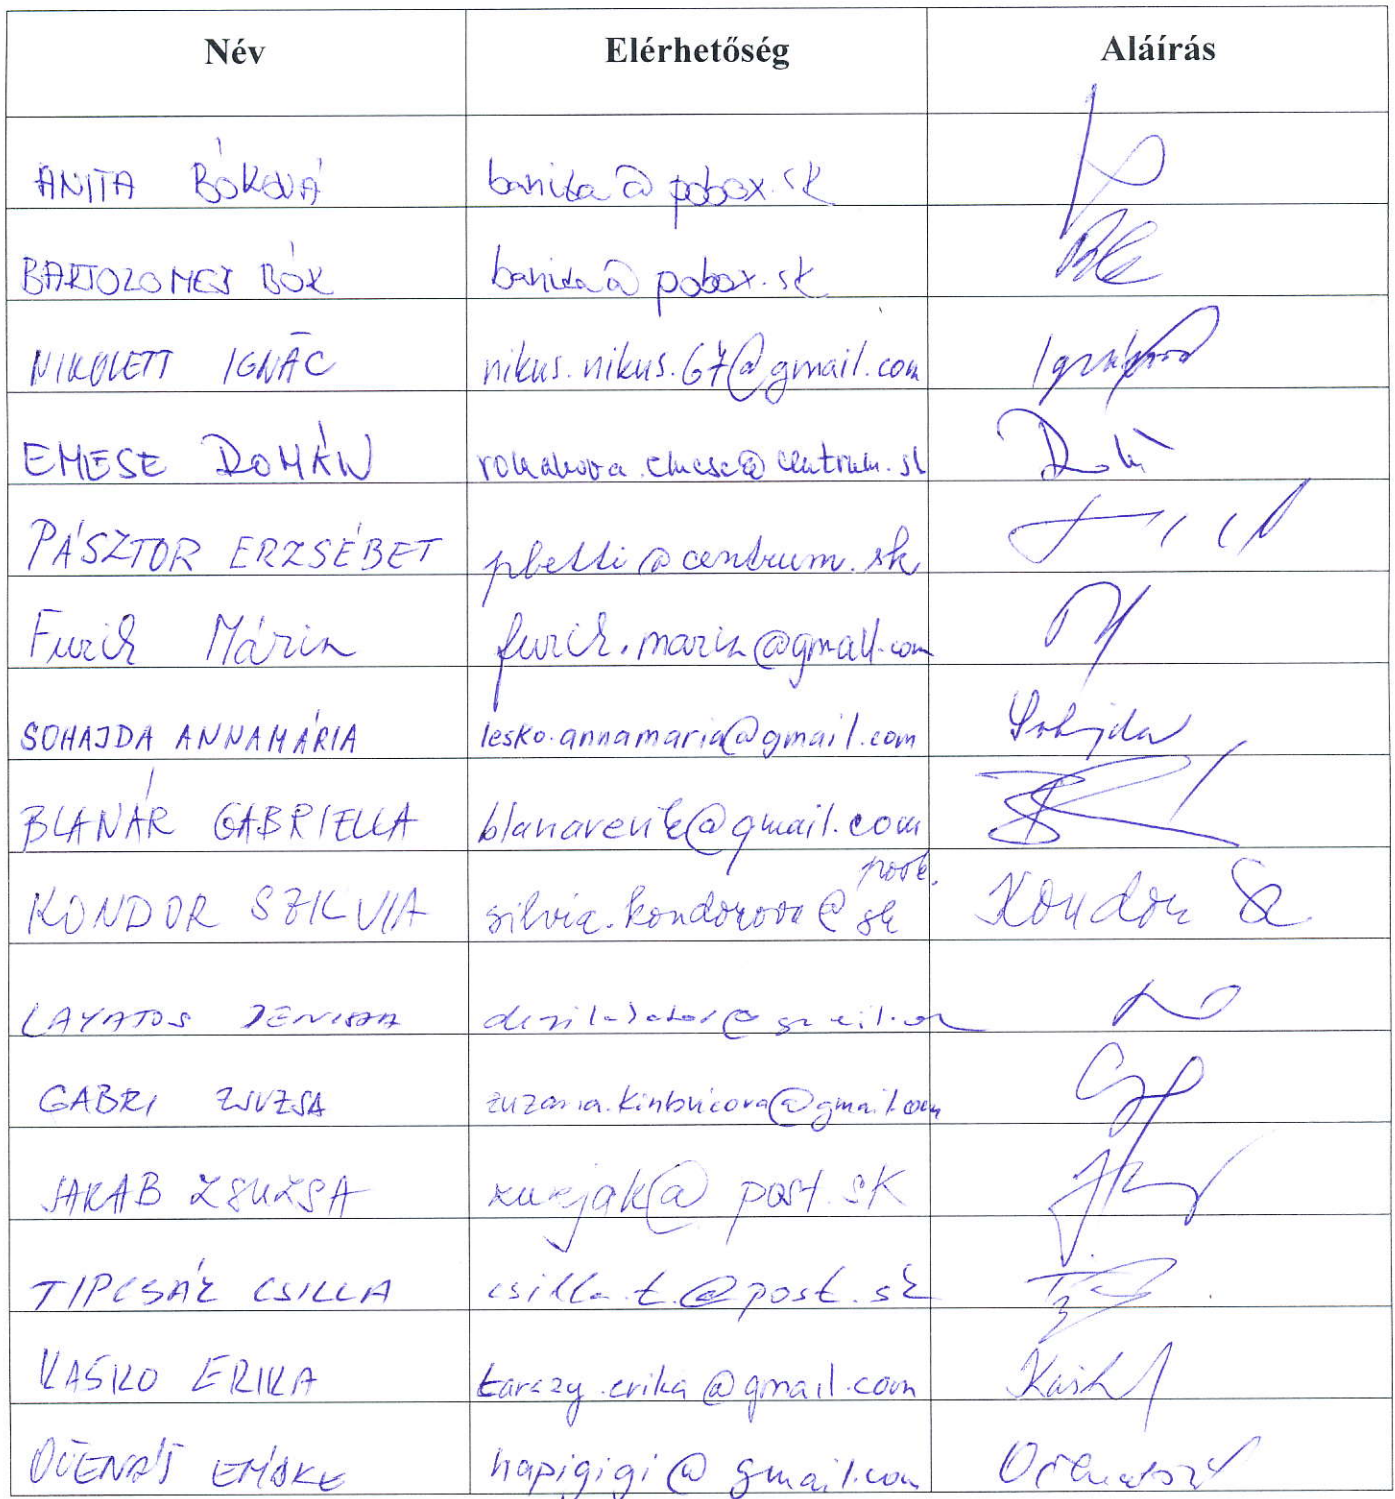 Név Elérhetőség Aláírás
ANITA BÓKOVÁ banita@pobox.sk
BARTOLOMEJ BÓK banita@pobox.sk
NIKOLETT IGNÁC nikus.nikus.67@gmail.com
EMESE ROMÁN romanova.emese@centrum.sk
PÁSZTOR ERZSÉBET pbetti@centrum.sk
Furik Mária furik.maria@gmail.com
SOHAJDA ANNAMÁRIA lesko.annamaria@gmail.com Sohajda
BLANÁR GABRIELLA blanarenk@gmail.com
KONDOR SZILVIA silvia.kondorova@post.sk Kondor Sz
DENISA
GABRI ZSUZSA @gmail.com
JAKAB ZSUZSA zuzjak@post.sk
TIPCSÁK CSILLA csilla.t.@post.sk
KAŠKO ERIKA tarczy.erika@gmail.com
OČENÁŠ EMŐKE hapigigi@gmail.com